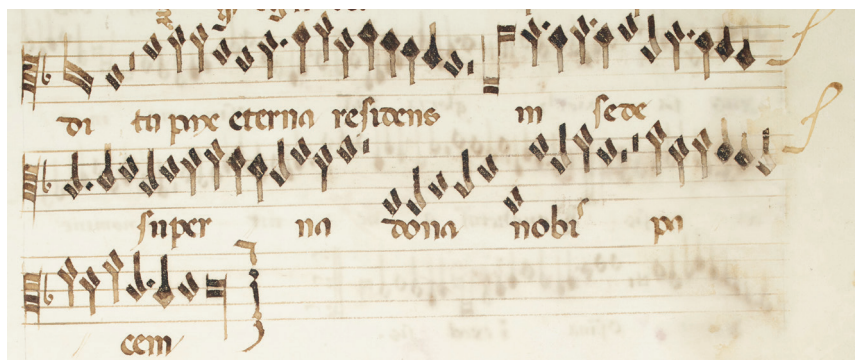 di tu pixe eterna residens in sede
super na dona nobis pa
cem